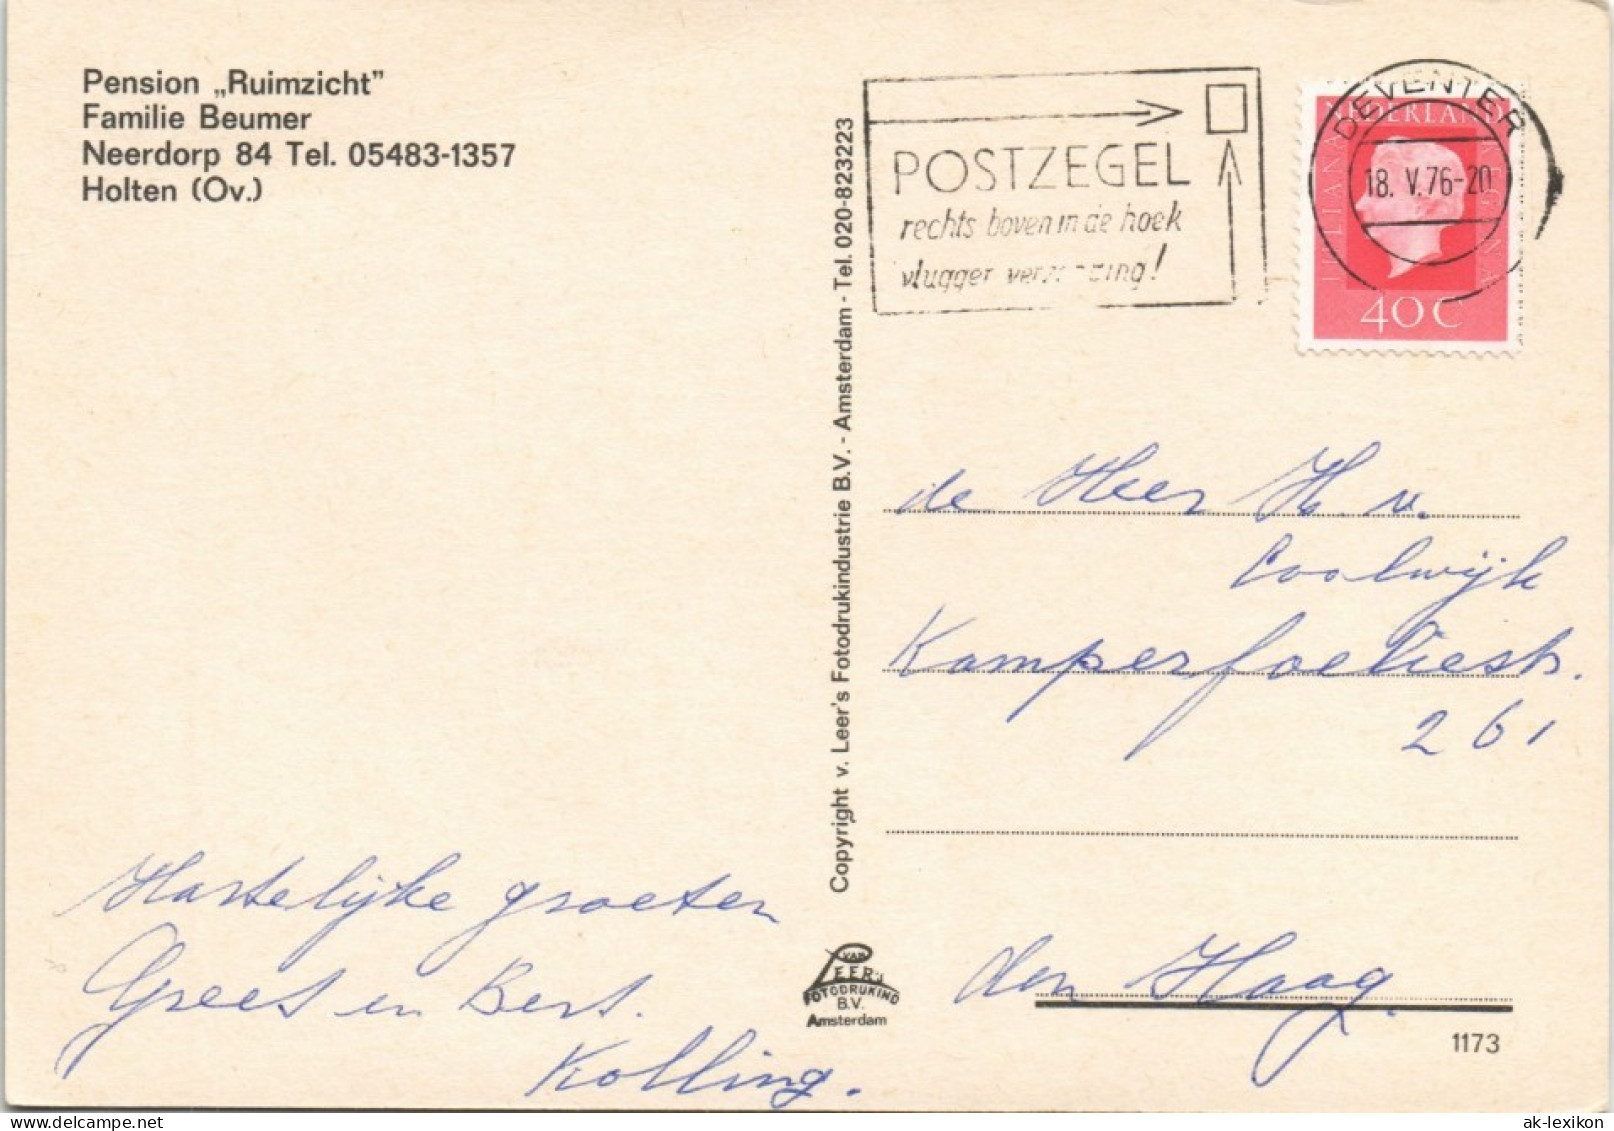 Pension „Ruimzicht”
Familie Beumer
Neerdorp 84 Tel. 05483-1357
Holten (Ov.)
POSTZEGEL
rechts boven in de hoek
vlugger
NEDERLAND
JULIANA REGINA
40 C
DEVENTER
18. V. 76-20
Copyright v. Leer's Fotodrukindustrie B.V. - Amsterdam - Tel. 020-823223
de Heer H. v.
Coolwijk
Kamperfoeliestr.
261
den Haag.
Hartelijke groeten
Grees en Bert.
Kolling.
VAN
LEER's
FOTODRUKIND
B.V.
Amsterdam
1173
delcampe.net
ak-lexikon